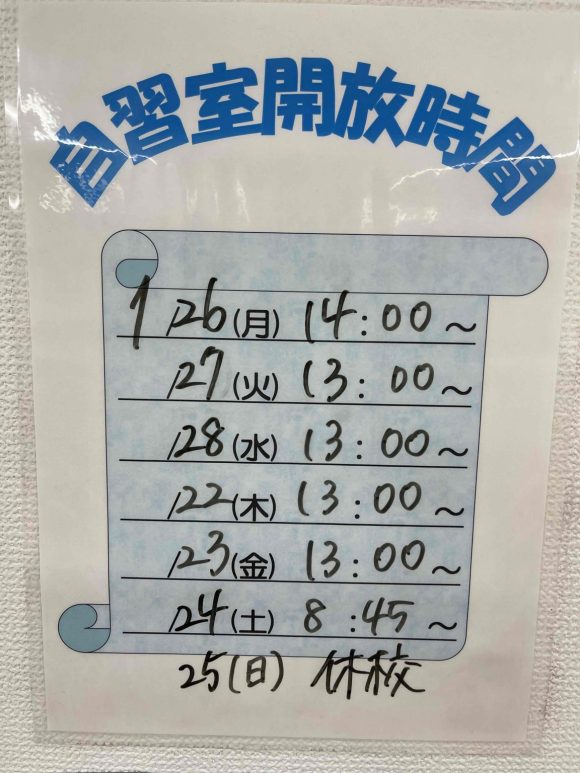 自習室開放時間
1/26(月) 14:00~
/27(火) 13:00~
/28(水) 13:00~
/22(木) 13:00~
/23(金) 13:00~
/24(土) 8:45~
25(日) 休校